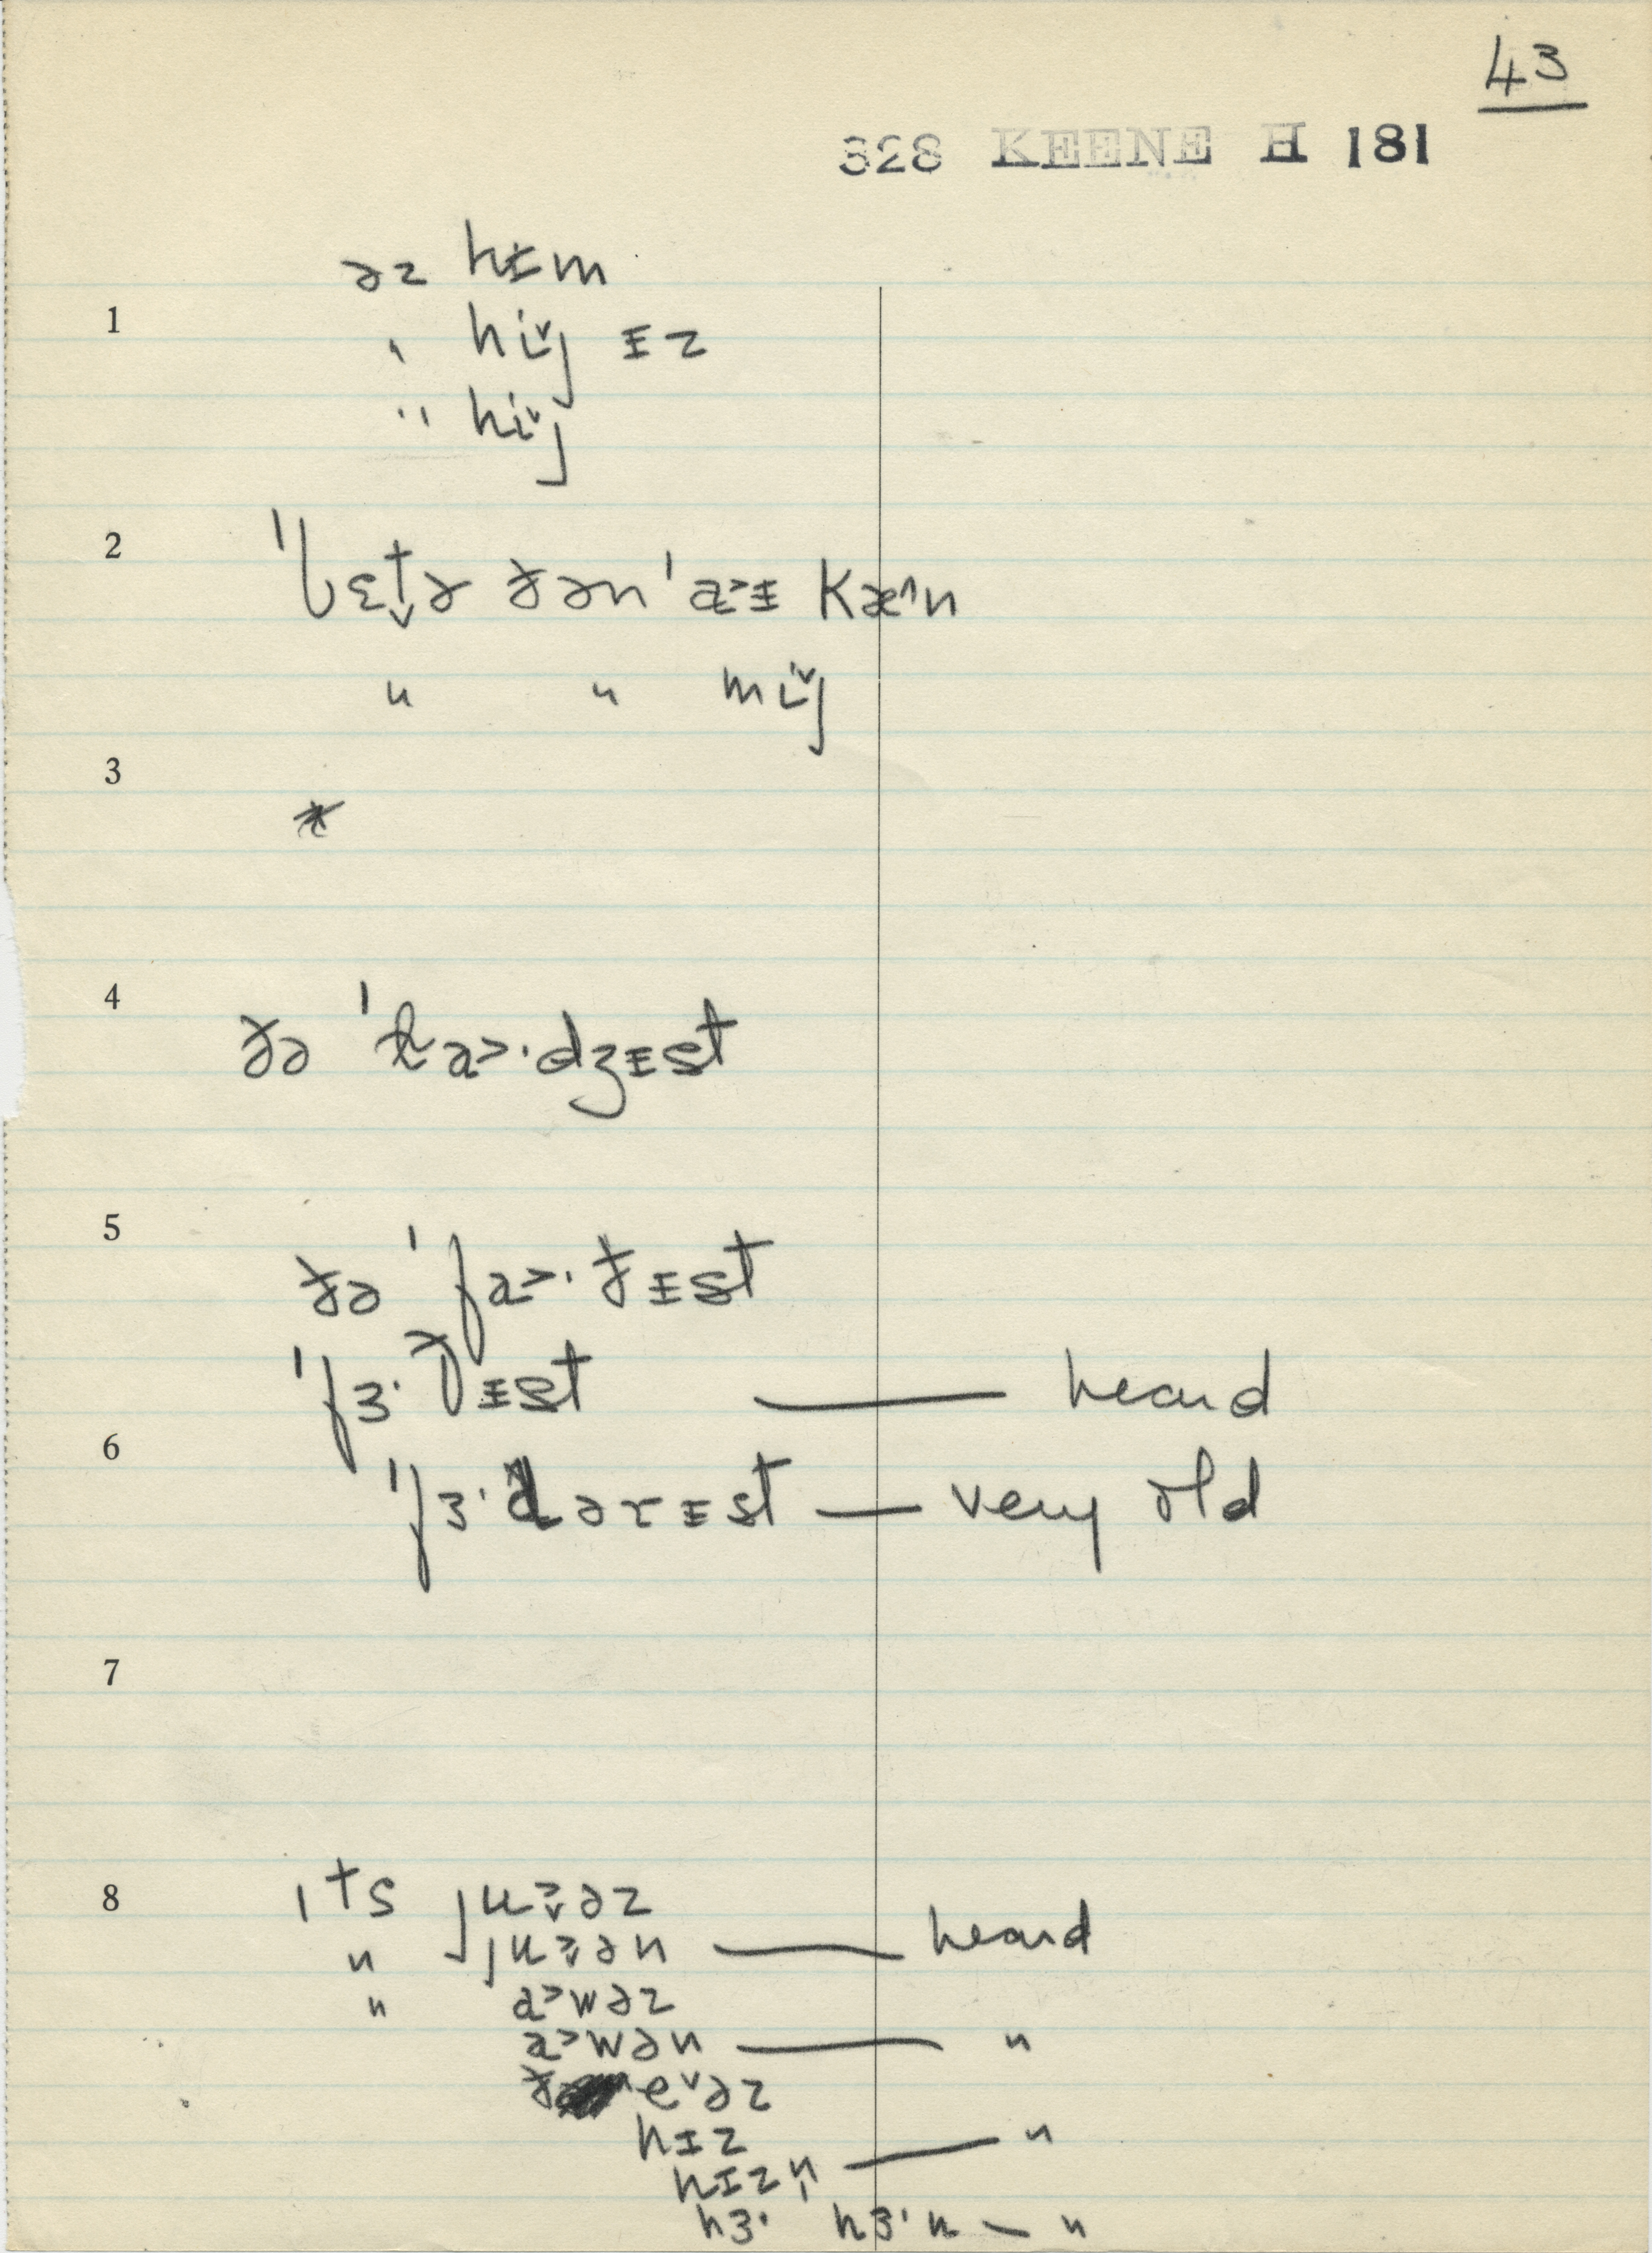 43
328 KEENE H 181
əz hɪm
1
" hiˇj ɪz
" hiˇj
2
ˈlɛt̬ə ðən ˈa˃ɪ kæ^n
" " miˇj
3
*
4
ðə ˈla˃·dʒɪst
5
ðə ˈfa˃·ðɪst
ˈfɜ·ðɪst — heard
6
ˈfɜ·dərɪst — very old
7
8
ɪts ju˃̬əz
" ju˃̬ən — heard
" a˃wəz
a˃wən — "
ðeˇəz
hɪz — "
hɪzn̩
hɜ· hɜ·n — "